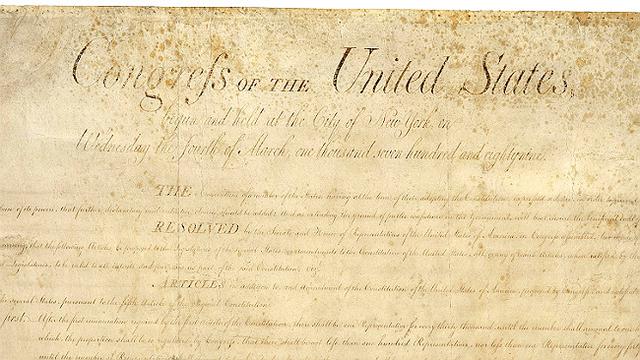 Congreſs OF THE United States,
begun and held at the City of New York, on
Wednesday the fourth of March, one thousand seven hundred and eighty nine.
THE Conventions of a number of the States, having at the time of their adopting the Constitution, expressed a desire, in order to prevent
of its powers, that further declaratory and restrictive clauses should be added: And as extending the ground of public confidence in the Government, will best ensure the beneficent ends
RESOLVED by the Senate and House of Representatives of the United States of America, in Congress assembled, two
concurring, that the following Articles be proposed to the Legislatures of the several States, as amendments to the Constitution of the United States, all, or any of which Articles, when ratified by
Legislatures, to be valid to all intents and purposes, as part of the said Constitution; viz.
ARTICLES in addition to, and amendment of the Constitution of the United States of America, proposed by Congress, and ratified
the several States, pursuant to the fifth Article of the original Constitution.
After the first enumeration required by the first Article of the Constitution, there shall be one Representative for every thirty thousand, until the number shall amount to one
which, the proportion shall be so regulated by Congress, that there shall be not less than one hundred Representatives, nor less than one Representative for every
until the number of Representatives